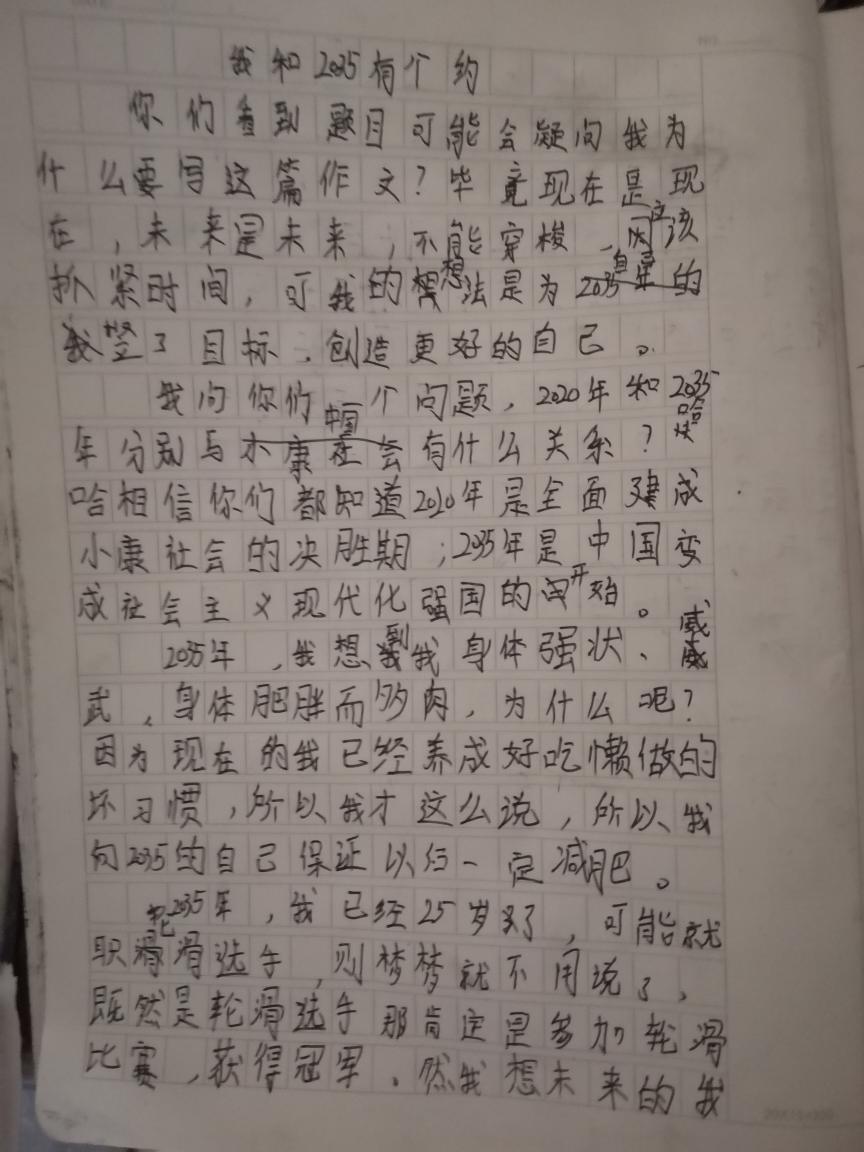 我和2035有个约
你们看到题目可能会疑问我为
什么要写这篇作文？毕竟现在是现
在，未来是未来，不能穿梭，应该
抓紧时间，可我的想法是为2035年的
我竖了目标，创造更好的自己。
我问你们一个问题，2020年和2035
年分别与中国社会有什么关系？哈
哈相信你们都知道2020年是全面建成
小康社会的决胜期；2035年是中国变
成社会主义现代化强国的开始。
2035年，我想到我身体强状、威
武，身体肥胖而多肉，为什么呢？
因为现在的我已经养成好吃懒做的
坏习惯，所以我才这么说，所以我
向2035的自己保证以后一定减肥。
2035年，我已经25岁了，可能就
职轮滑选手，则梦梦就不用说了，
既然是轮滑选手那肯定是参加轮滑
比赛，获得冠军。然我想未来的我